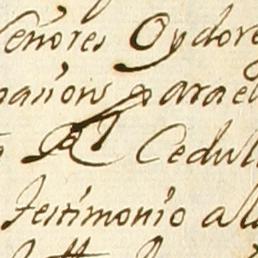 Señores Oydore
pañons para el
Rl Cedul
Testimonio a la